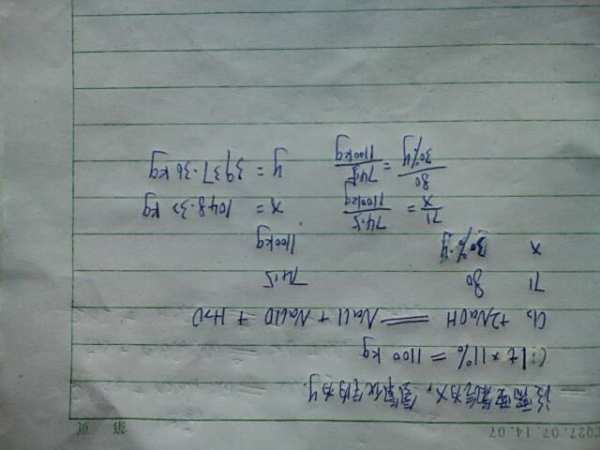 设需要氯气为X,氢氧化钠为y.
1t×11% = 1100 kg
Cl₂+2NaOH == NaCl + NaClO + H₂O
71 80 74.5
x 30%·y 1100kg
71/x = 74.5/1100kg x = 1048.32 kg
80/30%y = 74.5/1100kg y = 3937.36 kg